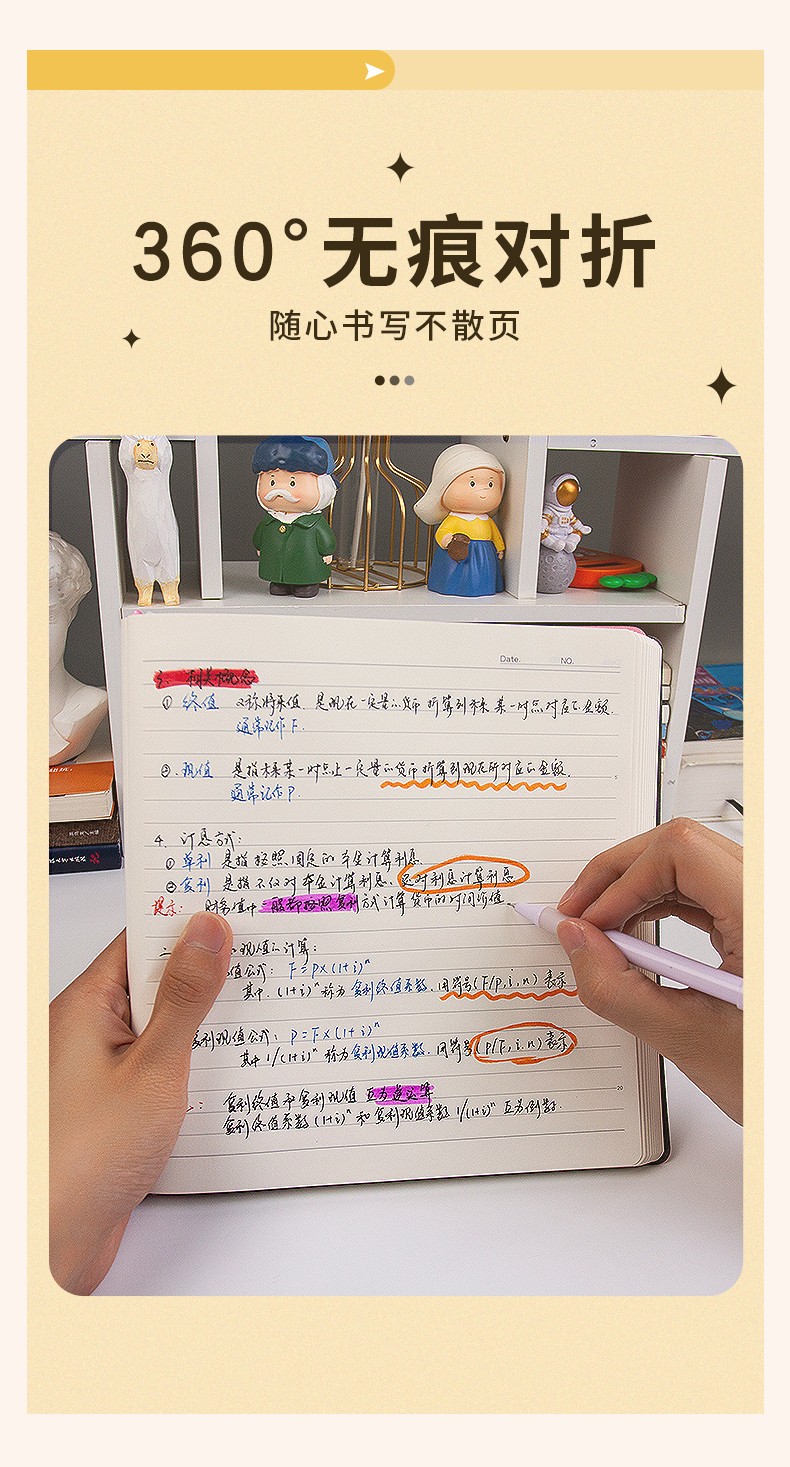 360°无痕对折
随心书写不散页
Date.
NO.
3. 相关概念
① 终值 又称将来值. 是现在一定量的货币折算到未来某一时点对应的金额.
通常记作 F.
②. 现值 是指未来某一时点上一定量的货币折算到现在所对应的金额.
5
通常记作 P.
4. 计息方式:
① 单利 是指按照固定的本金计算利息.
② 复利 是指不仅对本金计算利息, 还对利息计算利息
提示: 财务管中一般都按照复利方式计算货币的时间价值.
现值的计算:
值公式: F=P×(1+i)ⁿ
其中. (1+i)ⁿ 称为复利终值系数. 用符号(F/P,i,n) 表示
复利现值公式: P=F×(1+i)ⁿ
其中 1/(1+i)ⁿ 称为复利现值系数. 用符号(P/F,i,n)表示
20
: 复利终值和复利现值互为逆运算
复利终值系数(1+i)ⁿ 和复利现值系数 1/(1+i)ⁿ 互为倒数.